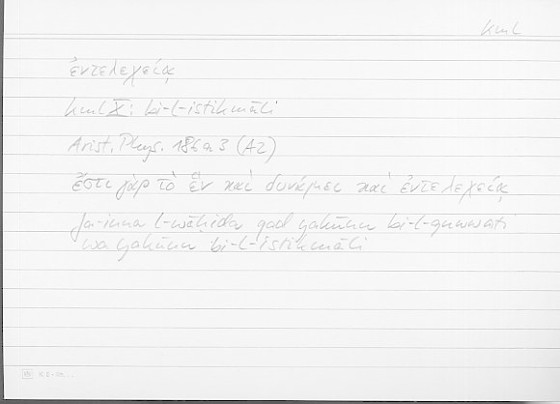 kml
ἐντελεχείᾳ
kml X: bi-l-istikmāli
Arist. Phys. 186a3 (A2)
ἔστι γὰρ τὸ ἓν καὶ δυνάμει καὶ ἐντελεχείᾳ
fa-inna l-wāḥida qad yakūnu bi-l-quwwati
wa yakūnu bi-l-istikmāli